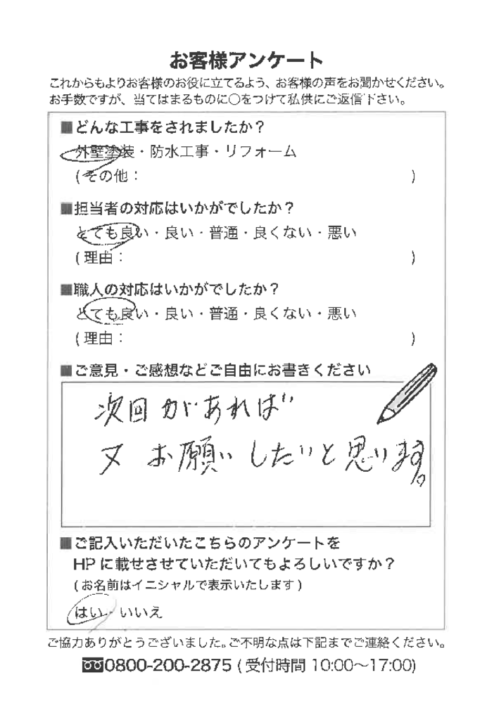 お客様アンケート
これからもよりお客様のお役に立てるよう、お客様の声をお聞かせください。
お手数ですが、当てはまるものに○をつけて私供にご返信下さい。
■どんな工事をされましたか？
外壁塗装・防水工事・リフォーム
(その他： )
■担当者の対応はいかがでしたか？
とても良い・良い・普通・良くない・悪い
(理由： )
■職人の対応はいかがでしたか？
とても良い・良い・普通・良くない・悪い
(理由： )
■ご意見・ご感想などご自由にお書きください
次回があれば
又お願いしたいと思います。
■ご記入いただいたこちらのアンケートを
HPに載せさせていただいてもよろしいですか？
(お名前はイニシャルで表示いたします)
はい・いいえ
ご協力ありがとうございました。ご不明な点は下記までご連絡ください。
0800-200-2875 (受付時間 10:00～17:00)